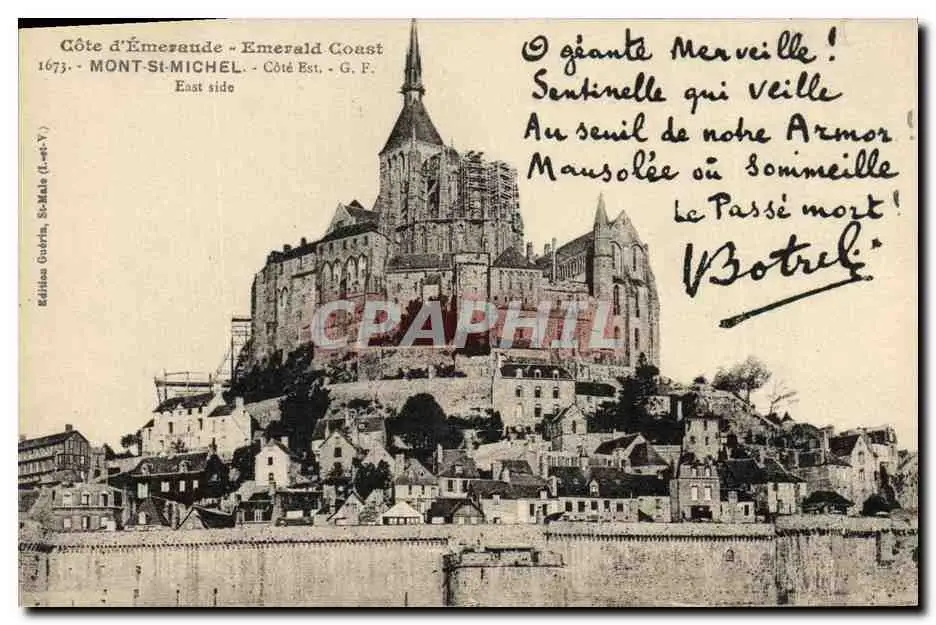 Côte d'Émeraude - Emerald Coast
1673. - MONT-St-MICHEL. - Côté Est. - G. F.
East side
Edition Guérin, St-Malo (I.-et-V.)
O géante Merveille !
Sentinelle qui veille
Au seuil de notre Armor
Mausolée où sommeille
Le Passé mort !
Botrel
CPAPHIL